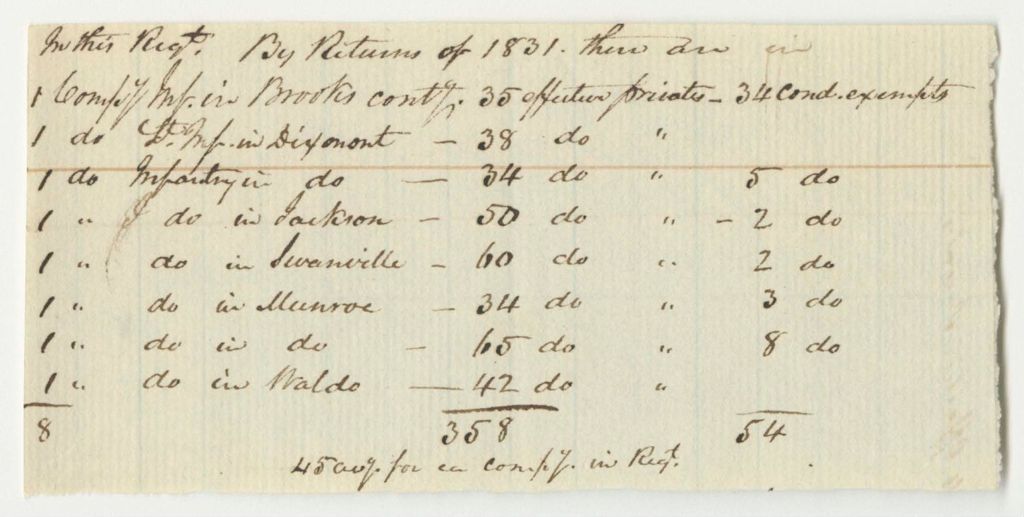 In this Regt. By Returns of 1831. there are in
1 Comp'y Inf. in Brooks cont'g. 35 effective privates - 34 cond. exempts
1 do Lt. Inf. in Dixmont - 38 do "
1 do Infantry in do — 34 do " 5 do
1 " do in Jackson - 50 do " - 2 do
1 " do in Swanville - 60 do " 2 do
1 " do in Munroe - 34 do " 3 do
1 " do in do - 65 do " 8 do
1 " do in Waldo — 42 do "
8 358 54
45 avg. for ea comp'y. in Regt.